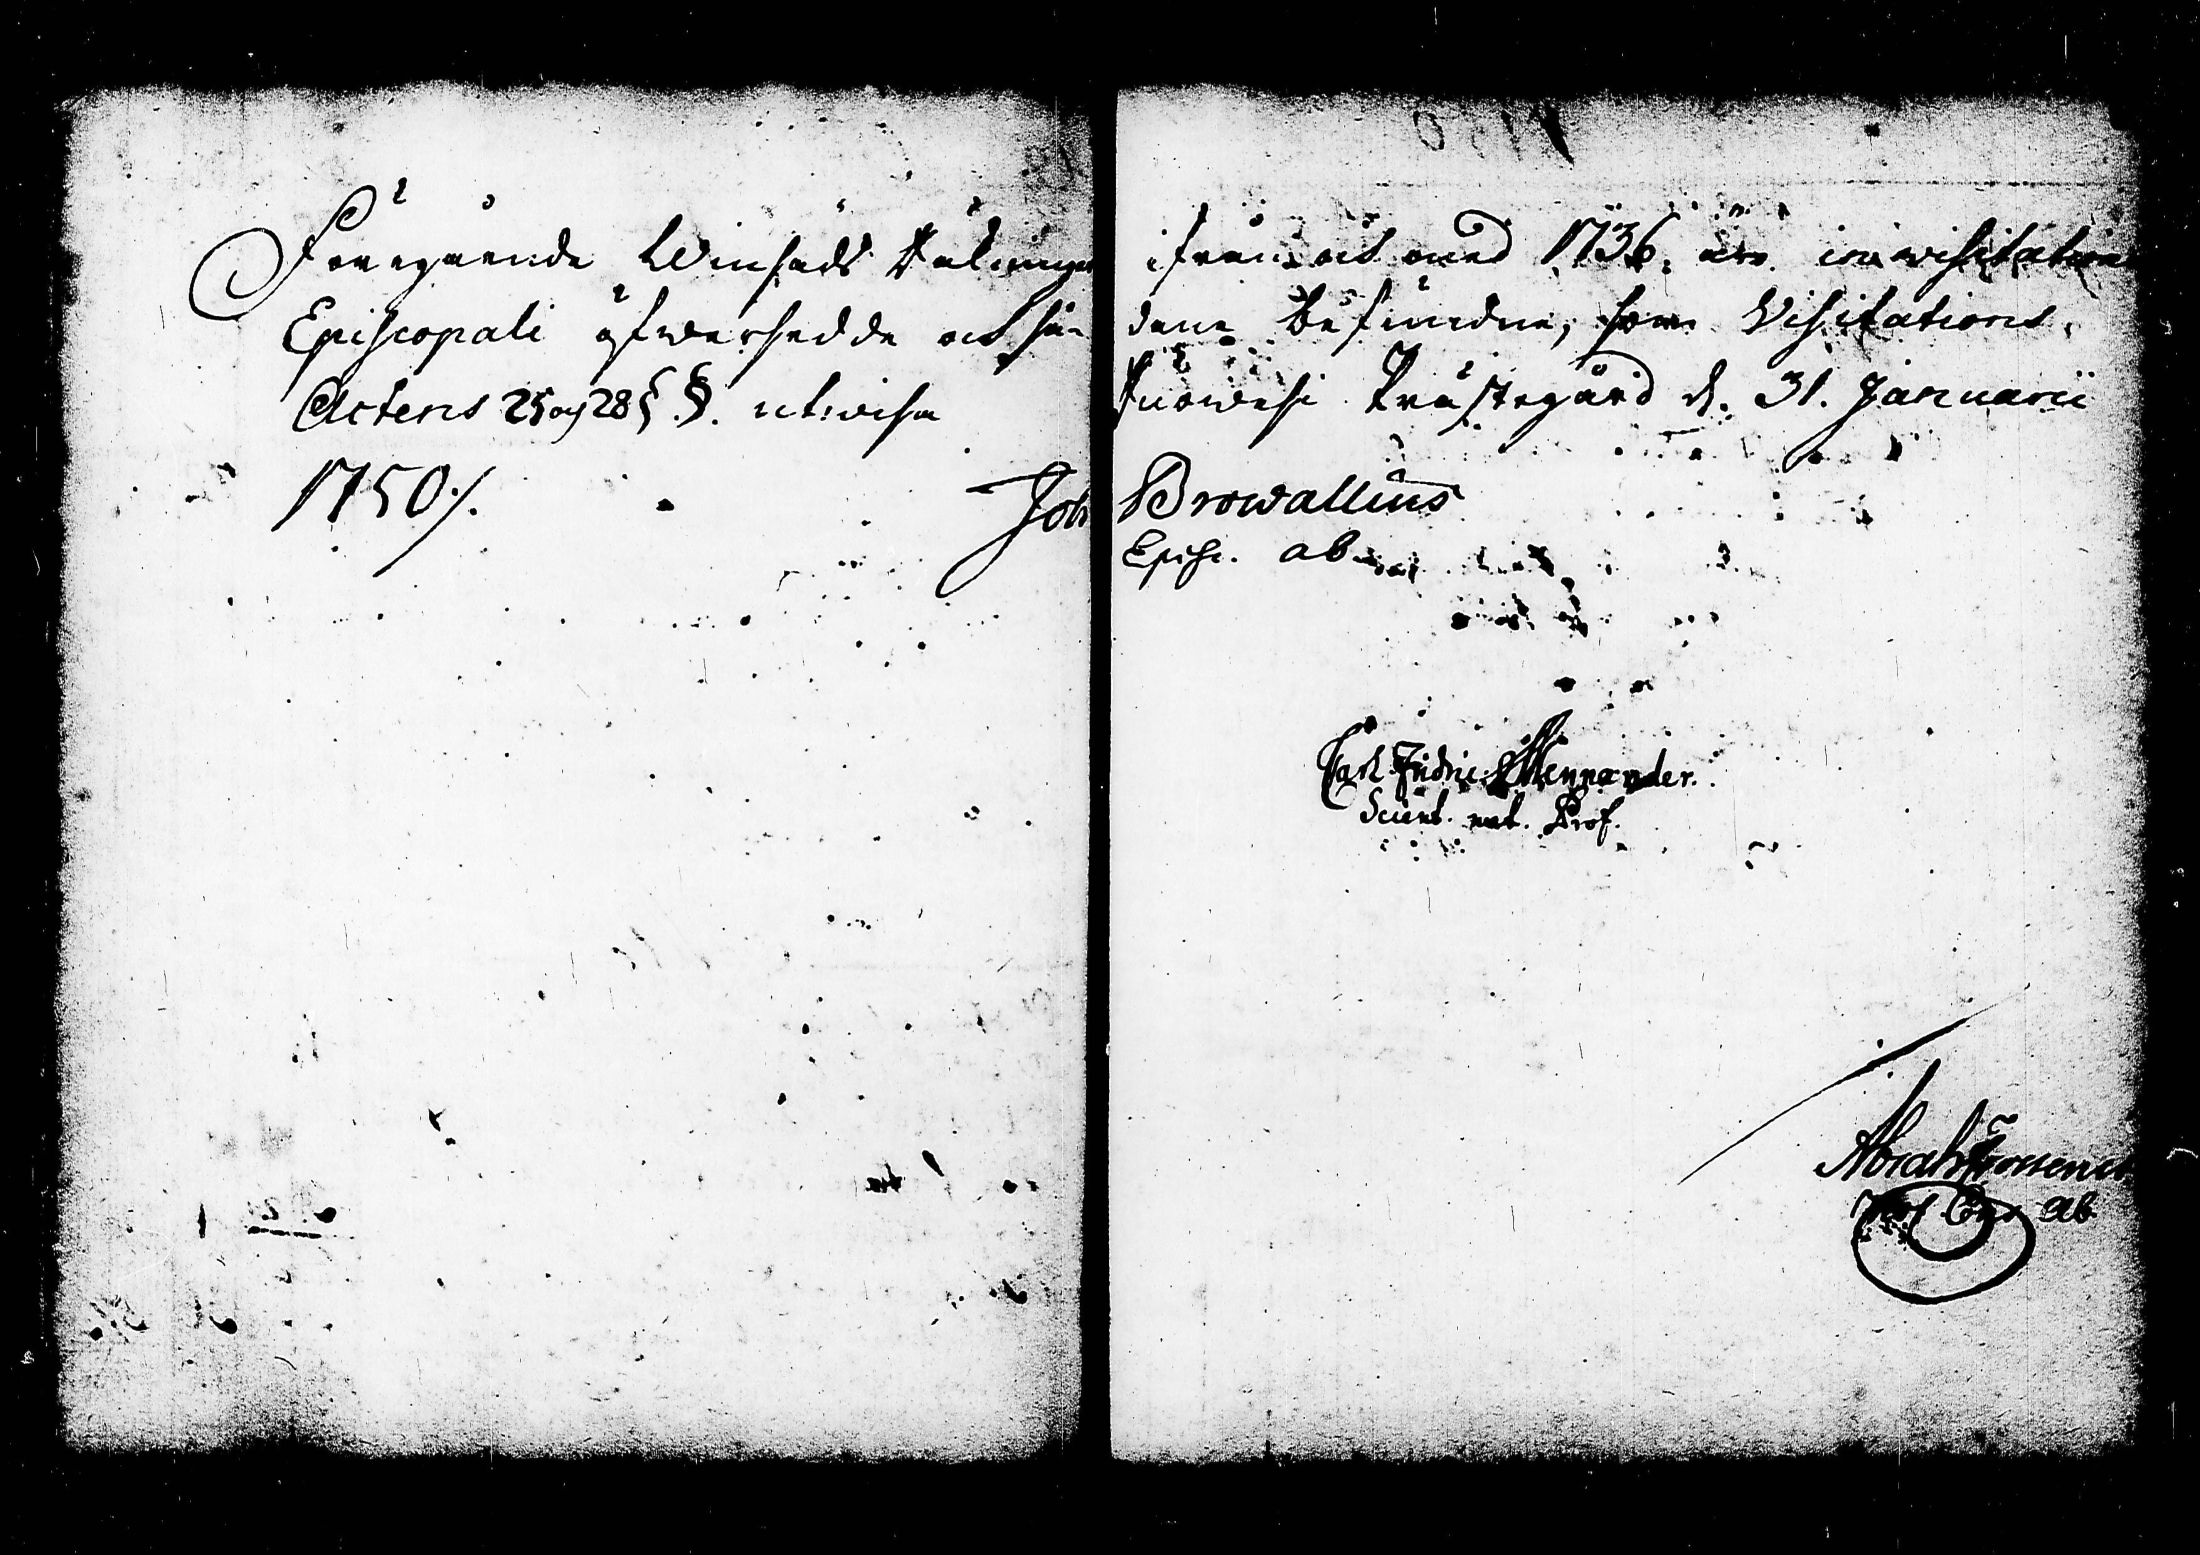 Föregående Winsads Räkninga ifrån och med 1736. äro in visitatione
Episcopali öfwersedde och så- dane befundne, som Visitations,
Actens 25 och 28 §.§. utwisa Prästegård d. 31. Januarii
1750./. Joh Browallius
Episc. ab
Carl Fridric Mennander.
Scient. nat. Prof.
Abrah
ab.